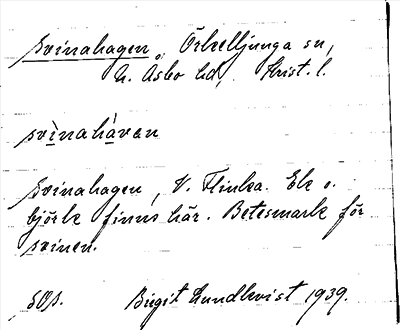 Svinahagen, Örkelljunga sn,
N. Åsbo hd, Krist. l.
svìnahávan
Svinahagen, V. Flinka. Ek o.
björk finns här. Betesmark för
svinen.
Birgit Lundkvist 1939.